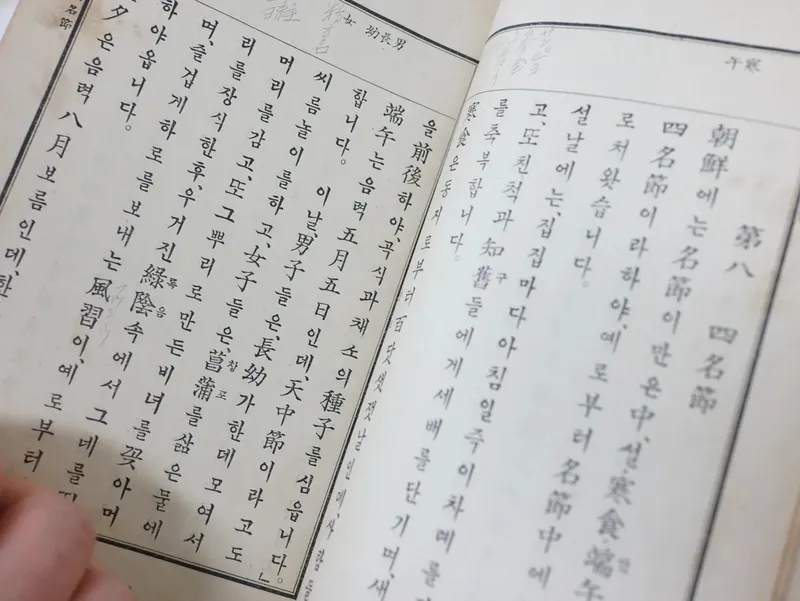 寒
午
第八 四名節
朝鮮에는名節이만은中、설·寒食·端午
四名節이라하야、예로부터名節中에
로처왓습니다。
설날에는、집집마다아침일즉이차례를
고、또친척과知舊들에게세배를단기며、새
를축복합니다。
寒食은동지로부터百다섯잿날인데、사람
男長幼
女
을前後하야、곡식과채소의種子를심읍니다。
端午는음력五月五日인데、天中節이라고도
합니다。 이날、男子들은、長幼가한데모여서
씨름놀이를하고、女子들은、菖蒲를삶은물에
머리를감고、또그뿌리로만든비녀를꽂아머
리를장식한후、우거진綠陰속에서그네를
며、즐겁게하로를보내는風習이、예로부터
하야옵니다。
夕은음력八月보름인데、한
名節